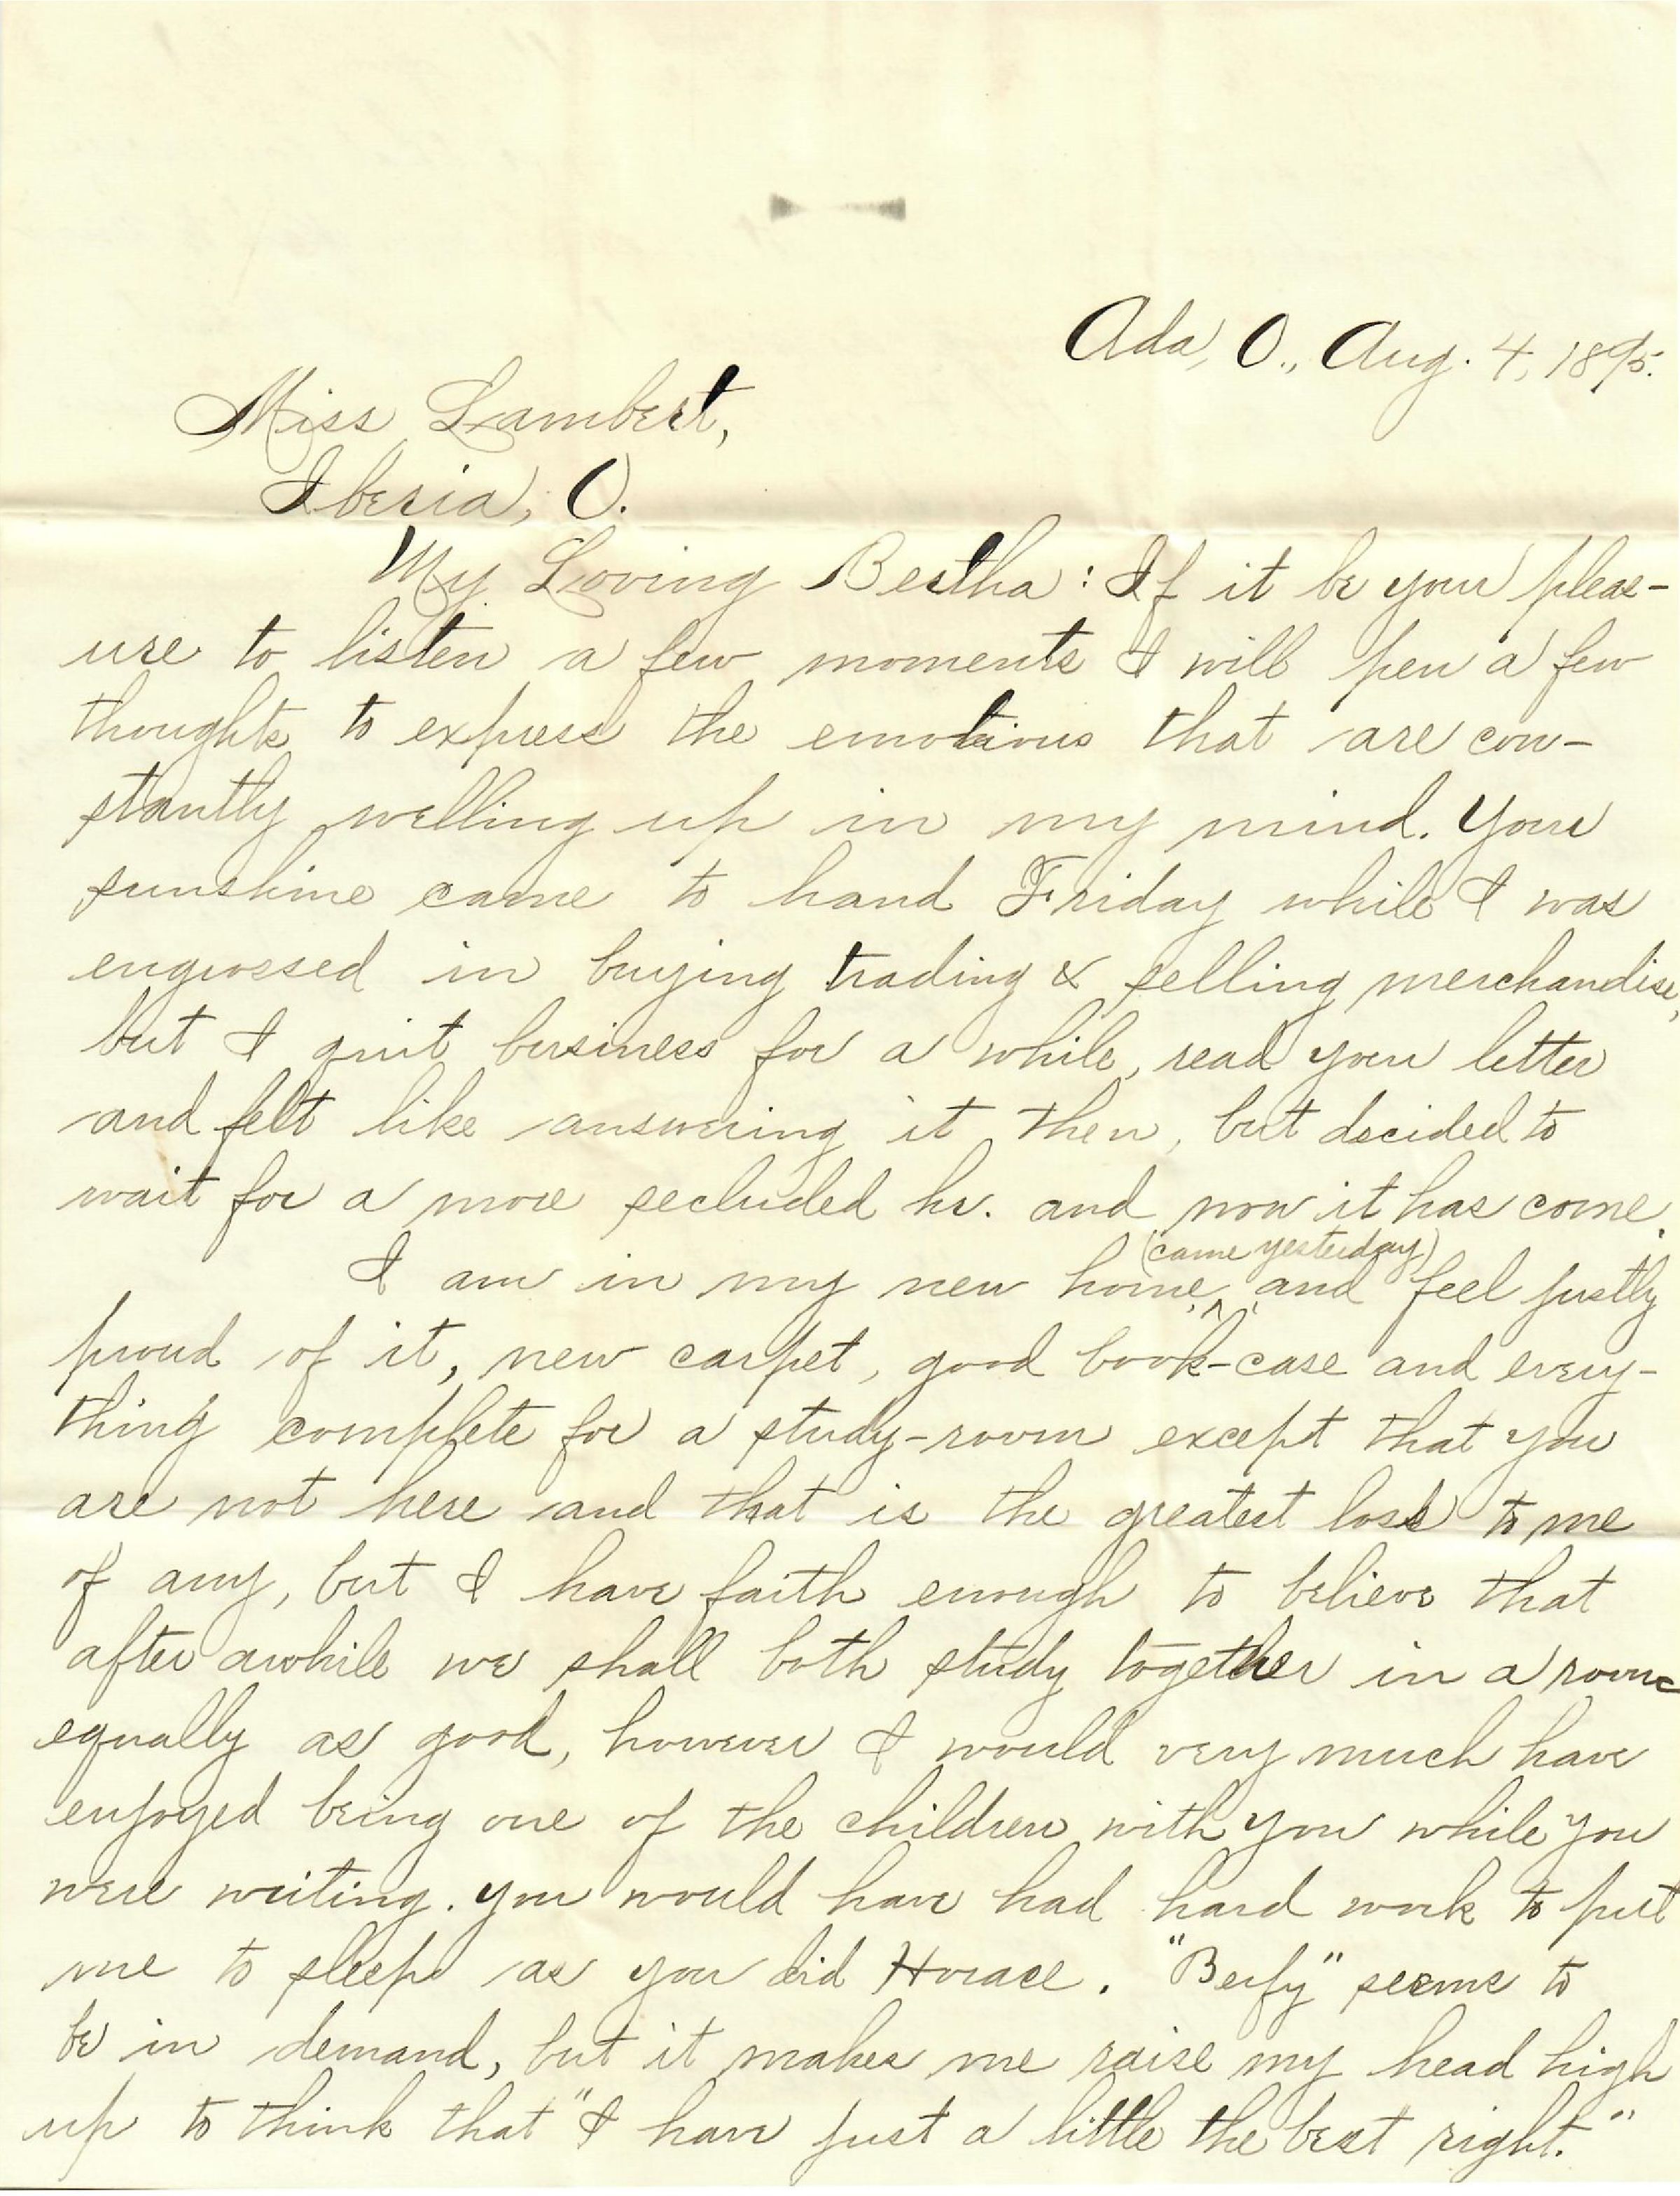 Ada, O., Aug. 4, 1895.
Miss Lambert,
Iberia, O.
My Loving Bertha: If it be your pleas-
ure to listen a few moments I will pen a few
thoughts to express the emotions that are con-
stantly welling up in my mind. Your
sunshine came to hand Friday while I was
engrossed in buying trading & selling merchandise,
but I quit business for a while, read your letter
and felt like answering it then, but decided to
wait for a more secluded hr. and now it has come.
(came yesterday)
I am in my new home, ^ and feel justly
proud of it, new carpet, good book-case and every-
thing complete for a study-room except that you
are not here and that is the greatest loss to me
of any, but I have faith enough to believe that
after awhile we shall both study together in a room
equally as good, however I would very much have
enjoyed being one of the children with you while you
were writing. you would have had hard work to put
me to sleep as you did Horace. "Berfy" seems to
be in demand, but it makes me raise my head high
up to think that "I have just a little the best right."